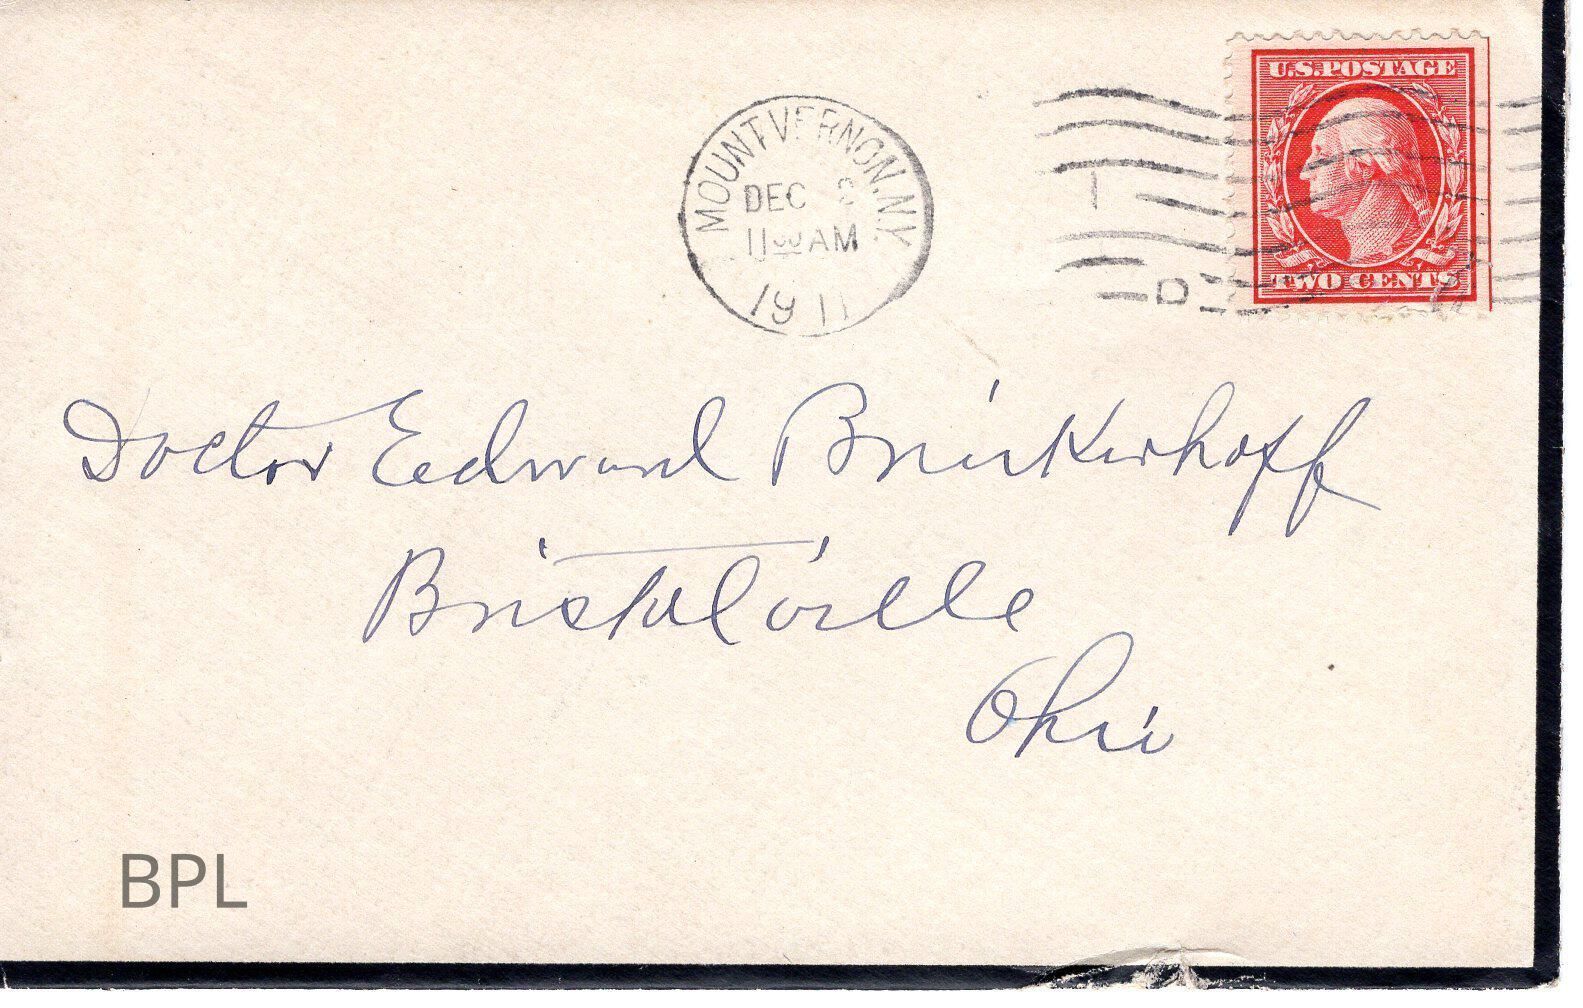 U.S. POSTAGE
TWO CENTS
MOUNT VERNON, N.Y.
DEC 2
11 30 AM
1911
1
D
Doctor Edward Brinkerhoff
Bristolville
Ohio
BPL